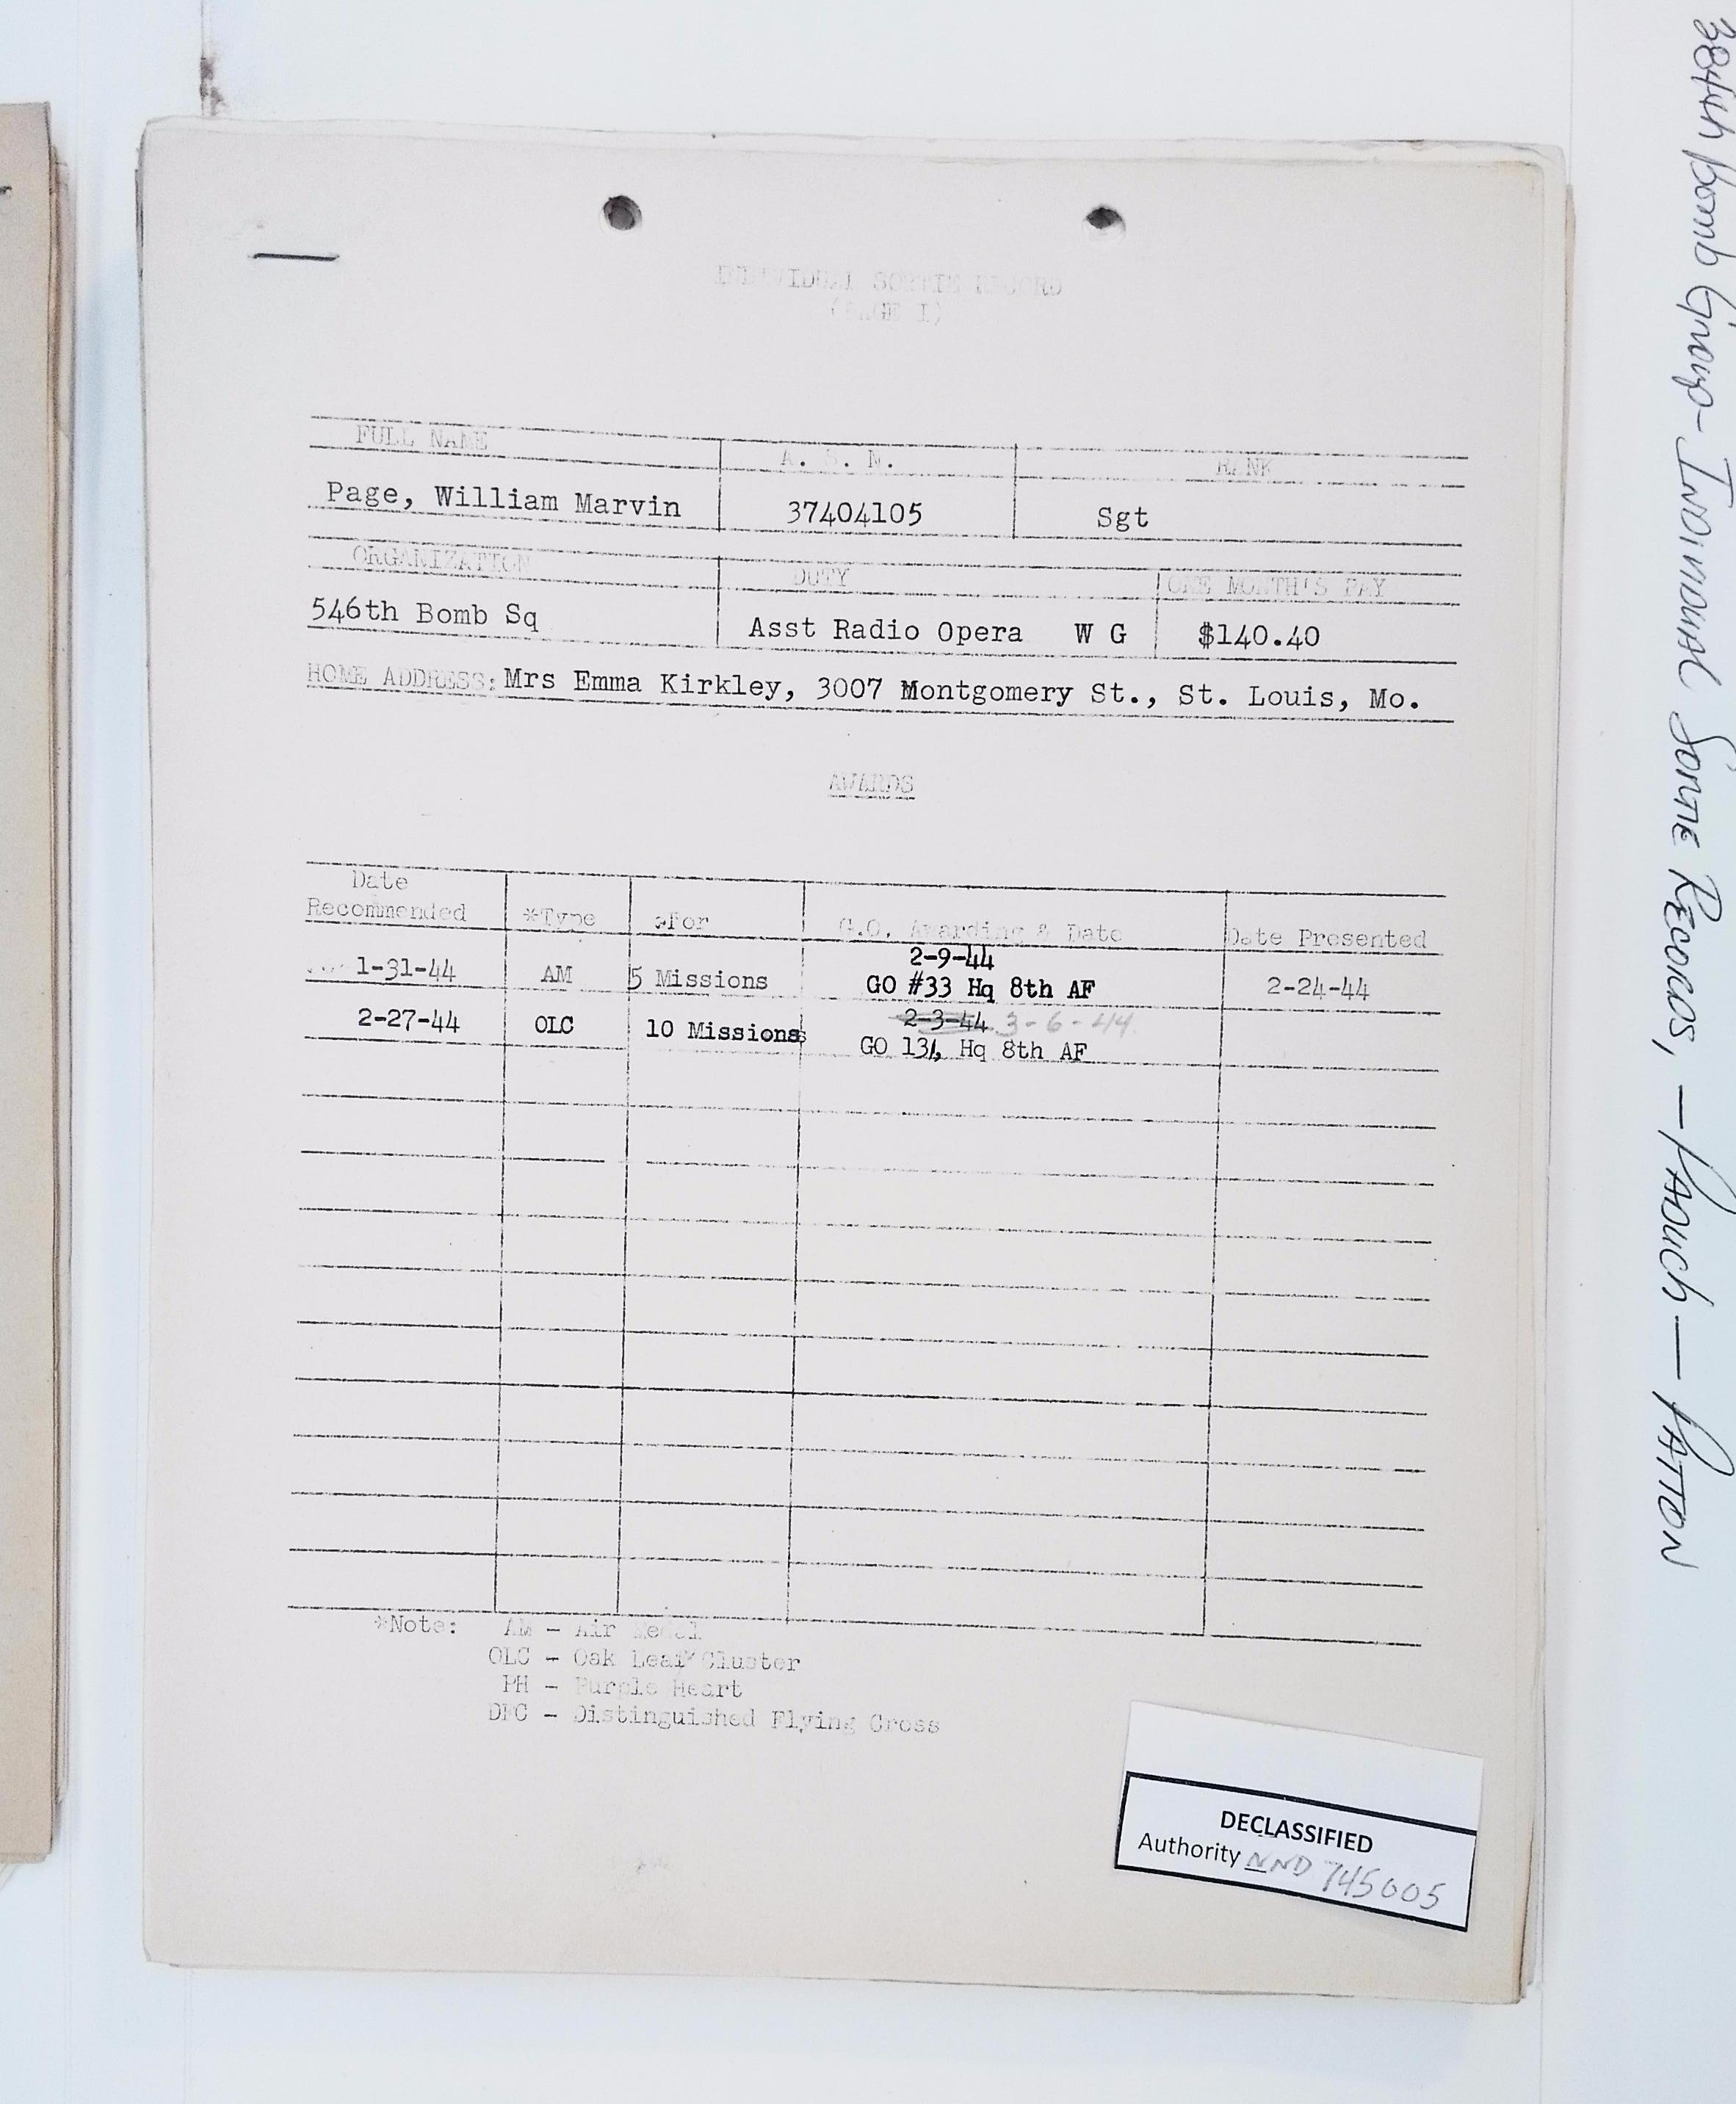 INDIVIDUAL SORTIE RECORD
(PAGE I)
FULL NAME A. S. N. RANK
Page, William Marvin 37404105 Sgt
ORGANIZATION DUTY ONE MONTH'S PAY
546th Bomb Sq Asst Radio Opera W G $140.40
HOME ADDRESS: Mrs Emma Kirkley, 3007 Montgomery St., St. Louis, Mo.
AWARDS
Date
Recommended *Type For G.O. Awarding & Date Date Presented
2-9-44
1-31-44 AM 5 Missions GO #33 Hq 8th AF 2-24-44
2-27-44 OLC 10 Missions 2-3-44 3-6-44
GO 134 Hq 8th AF
*Note: AM - Air Medal
OLC - Oak Leaf Cluster
PH - Purple Heart
DFC - Distinguished Flying Cross
DECLASSIFIED
Authority NND 745005
384th Bomb Group - INDIVIDUAL SORTIE RECORDS, - PADUCH - PATTON